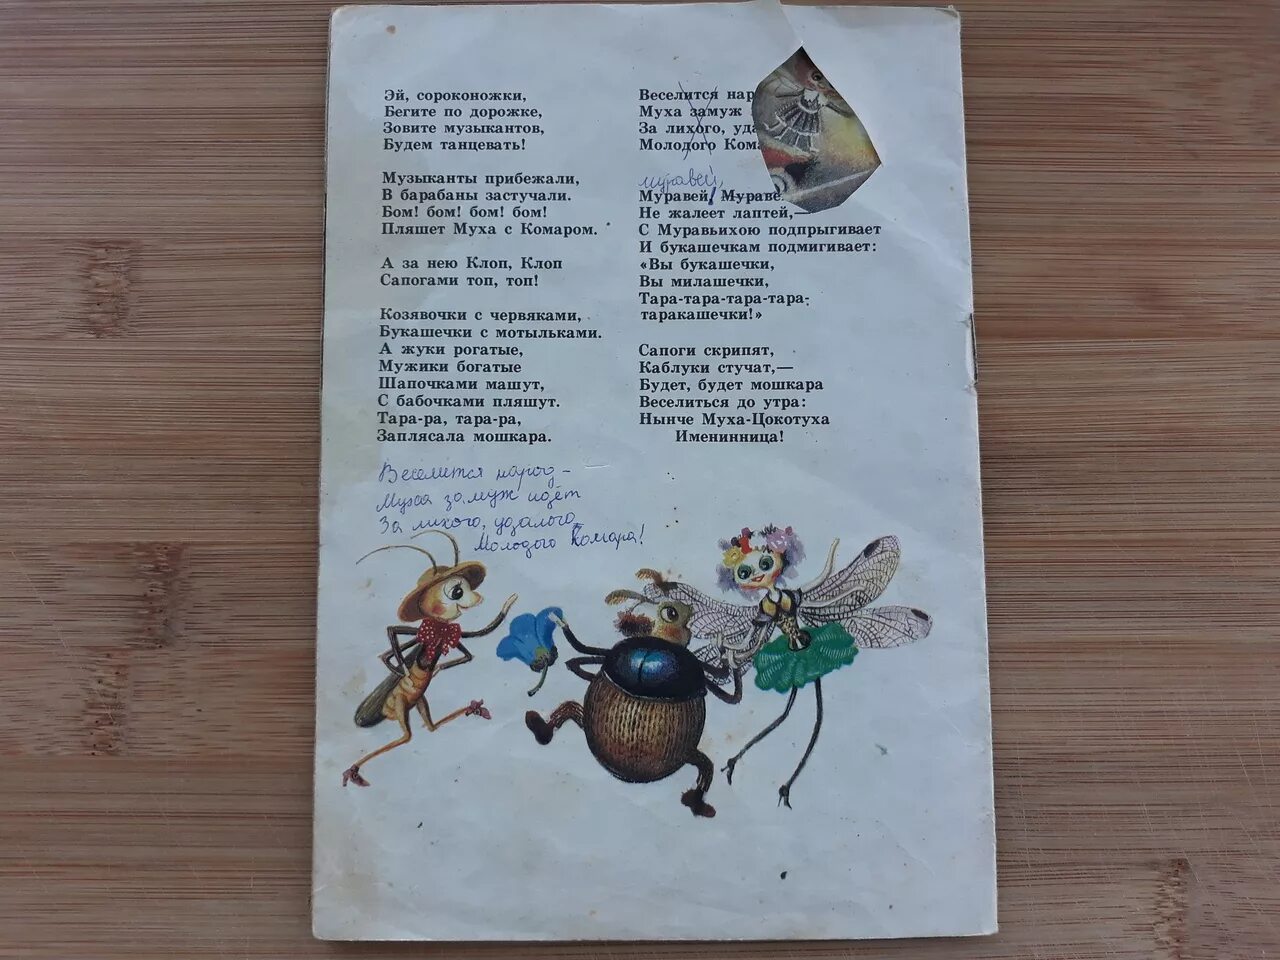 Эй, сороконожки,
Бегите по дорожке,
Зовите музыкантов,
Будем танцевать!
Музыканты прибежали,
В барабаны застучали.
Бом! бом! бом! бом!
Пляшет Муха с Комаром.
А за нею Клоп, Клоп
Сапогами топ, топ!
Козявочки с червяками,
Букашечки с мотыльками.
А жуки рогатые,
Мужики богатые
Шапочками машут,
С бабочками пляшут.
Тара-ра, тара-ра,
Заплясала мошкара.
Веселится народ –
Муха замуж идёт
За лихого, удалого
Молодого Комара!
Веселится нар
Муха замуж
За лихого, уда
Молодого Кома
муравей,
Муравей, Мураве
Не жалеет лаптей,—
С Муравьихою подпрыгивает
И букашечкам подмигивает:
«Вы букашечки,
Вы милашечки,
Тара-тара-тара-тара-
таракашечки!»
Сапоги скрипят,
Каблуки стучат,—
Будет, будет мошкара
Веселиться до утра:
Нынче Муха-Цокотуха
Именинница!